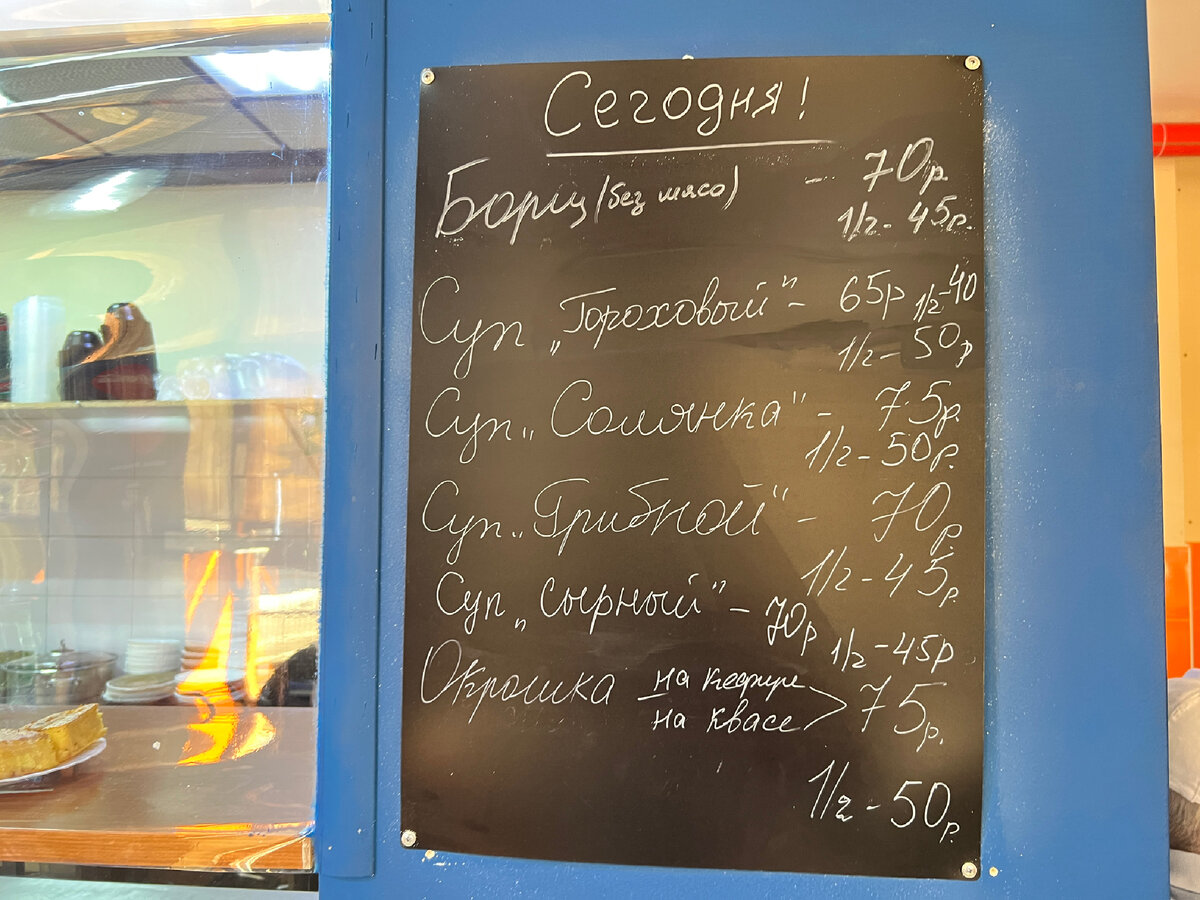 Сегодня!
Борщ (без мясо) - 70р.
1/2 - 45р.
Суп „Гороховый" - 65р 1/2-40
1/2 - 50р
Суп „Солянка" - 75р.
1/2 - 50р.
Суп „Грибной" - 70р.
1/2 - 45р.
Суп „сырный" - 70р 1/2 - 45р
Окрошка на кефире
на квасе 75р.
1/2 - 50р.